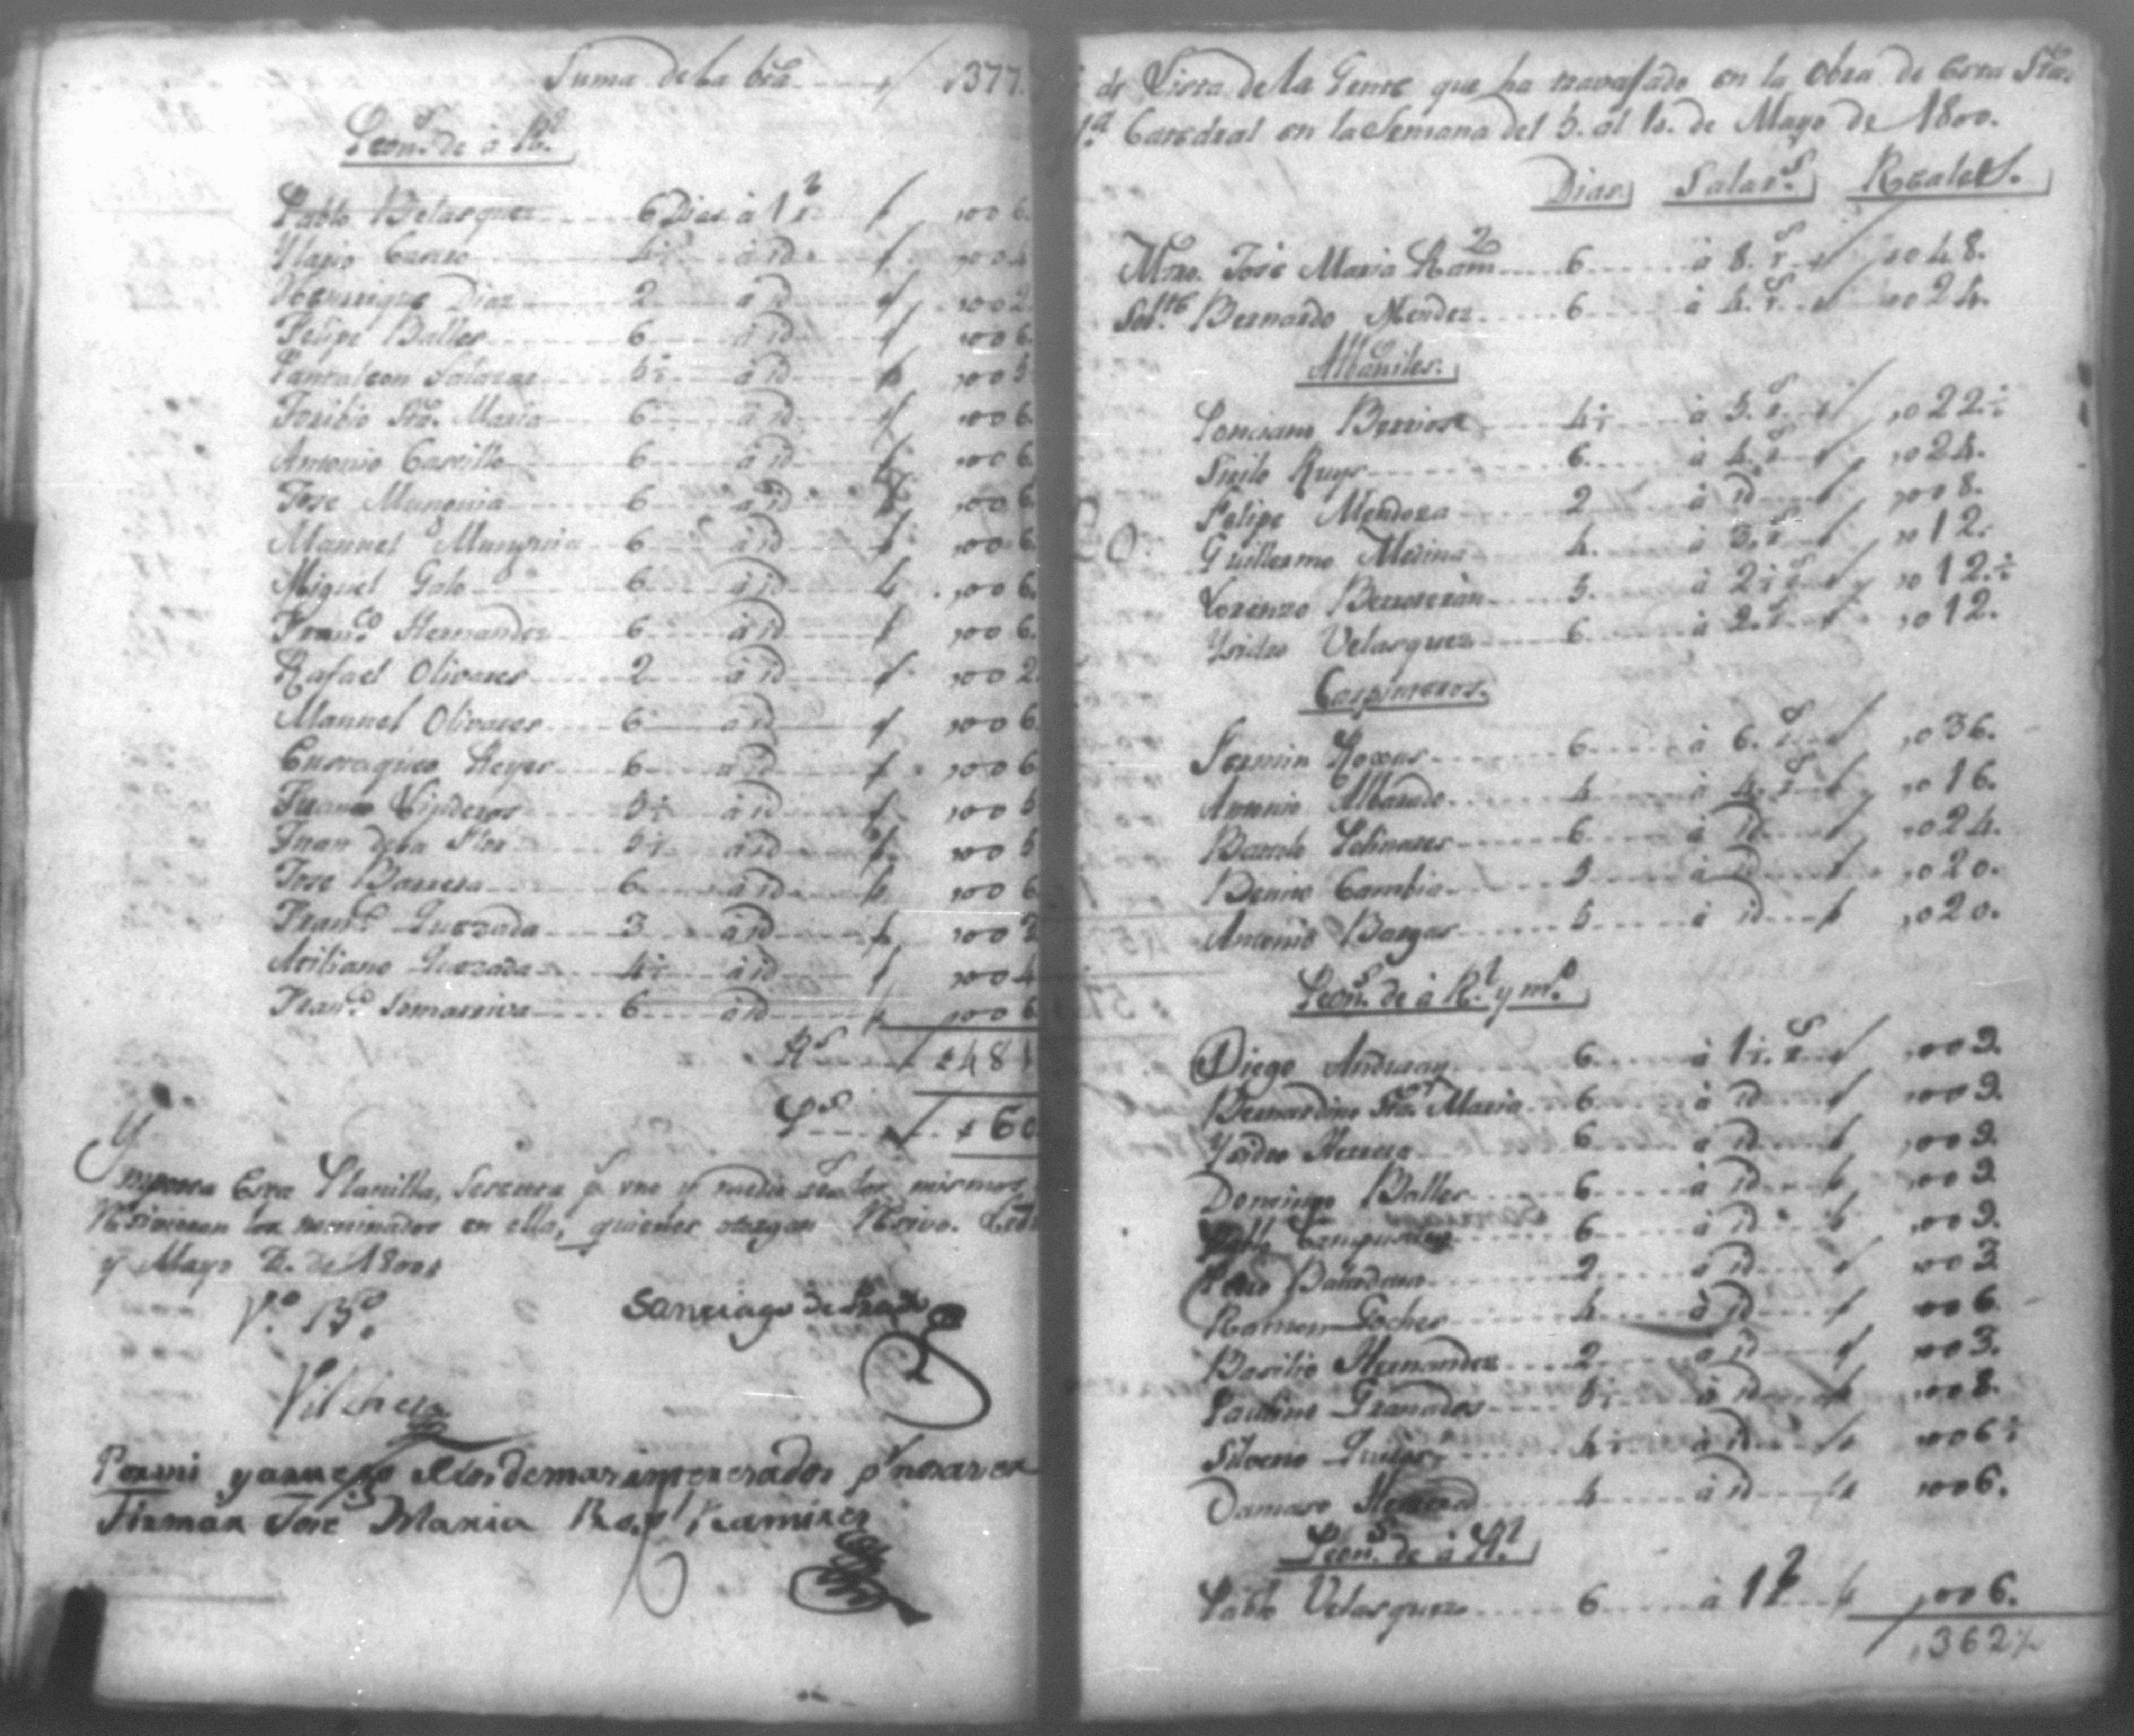 Suma de la bta 377
Peon.s de à Rl.
Pablo Belasquez 6 Dias à 1 r 006
4½ à id 004
Henrrique Diaz 2 à id 002
Felipe Balles 6 à id 006
Pantaleon Salazar 5½ à id 005
Toribio Sta. Maria 6 à id 006
Antonio Castillo 6 à id 006
Jose Munguia 6 à id 006
Manuel Munguia 6 à id 006
Miguel Galo 6 à id 006
Franco Hernandez 6 à id 006
Rafael Olivares 2 à id 002
Manuel Olivares 6 à id 006
Eustaquio Reyes 6 à id 006
5½ à id 005
Juan de la Flor 5½ à id 005
Jose Barrera 6 à id 006
Franco Quezada 3 à id 003
Quezada 4½ à id 004
Franco Somarriva 6 à id 006
Rs 481
Ps 60
Ymporta Esta Planilla, Sesenta ps uno y medio rs los mismos
Resivieron los nominados en ella, quienes otorgan Resivo.
y Mayo de 1800
Vo. Bo.
Santiago de
Vilchez
Por mi y a ruego de los demas interesados pr no saver
Firmar Jose Maria Ramirez
de Lista de la Gente que ha travajado en la Obra de esta Sta.
Catedral en la Semana del 5. al 10. de Mayo de 1800.
Dias Salars. Reales.
Mro. Jose Maria Ramz 6 à 8. rs 048.
Sobte Bernardo Mendez 6 à 4. rs 024.
Albañiles.
Ponciano Berrios 4½ à 5. rs 022.½
Ruys 6 à 4. rs 024.
Felipe Mendoza 2 à id 008.
Guillermo Medina 4. à 3. rs 012.
Lorenzo Berroteran 5. à 2½ rs 012.½
Ysidro Velasquez 6 à 2. rs 012.
Carpinteros.
Fermin Roxas 6 à 6. rs 036.
Antonio Albarado 4 à 4. rs 016.
Bartolo Colinares 6 à id 024.
Benino Cambio 5 à id 020.
Antonio Bargas 5 à id 020.
Peon.s de à Rl. y mo.
Diego Anduray 6 à 1½. rs 009.
Bernardino Sta. Maria 6 à id 009.
Ysidro Herrera 6 à id 009.
Domingo Balles 6 à id 009
6 à id 009.
2 à id 003
Ramon Goches 4 à id 006
Basilio Hernandez 2 à id 003.
Paulino Granados 5½ à id 008.
4½ à id 006½
Damaso 4 à id 006.
Peon.s de à Rl
Pablo Velasquez 6 à 1 r 006.
362½